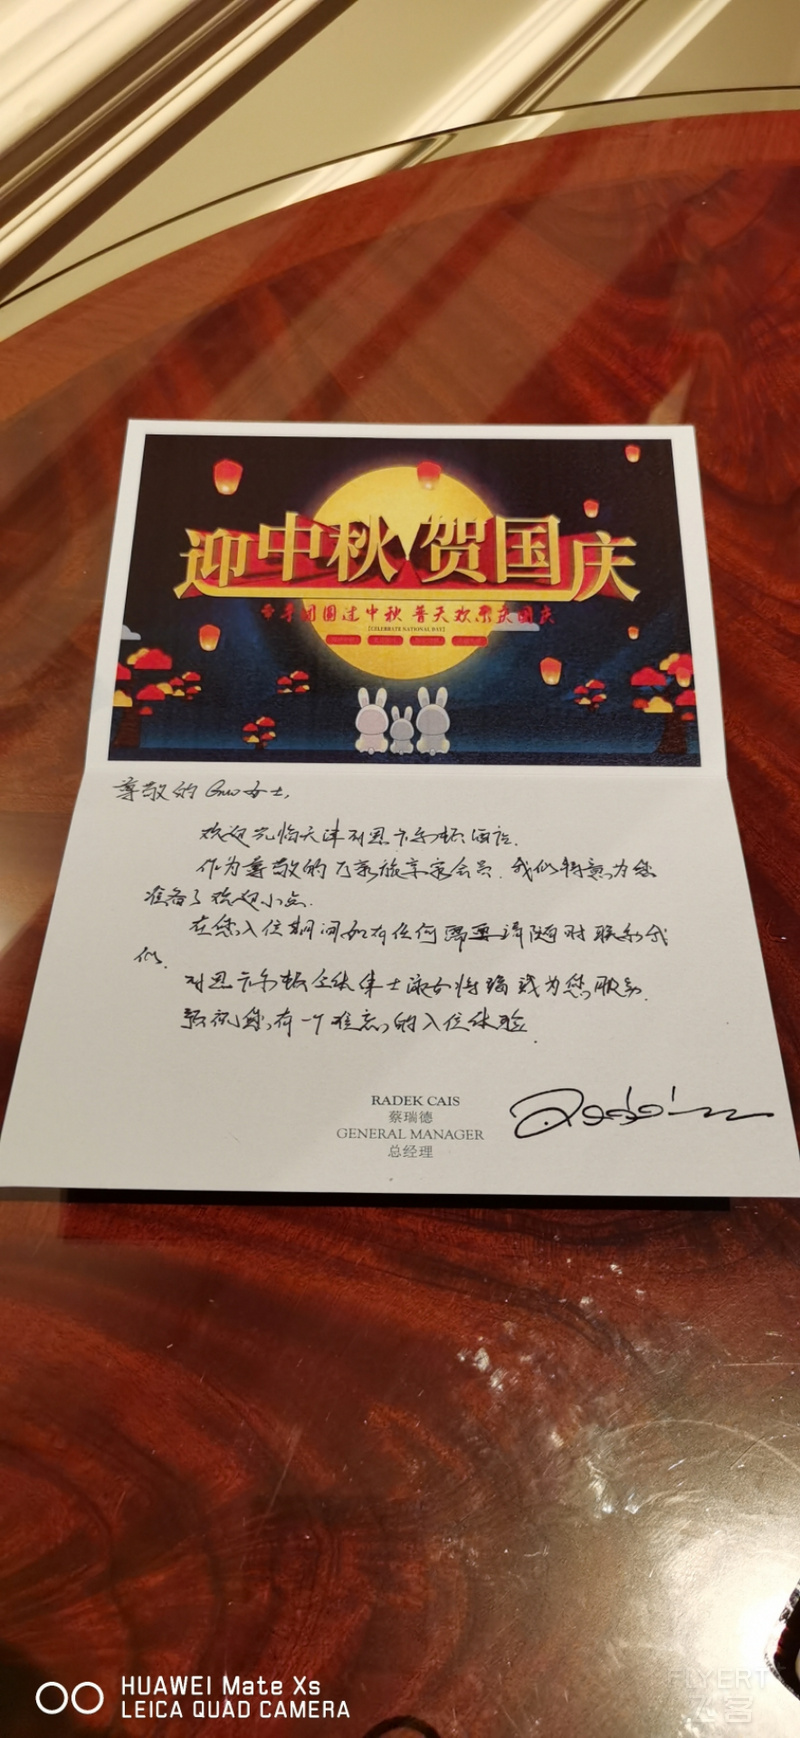 迎中秋 贺国庆
带手团圆过中秋 普天欢乐庆国庆
[CELEBRATE NATIONAL DAY]
尊敬的 Guo 女士,
欢迎光临天津丽思卡尔顿酒店.
作为尊敬的万豪旅享家会员, 我们特意为您
准备了欢迎小点.
在您入住期间如有任何需要请随时联系我
们.
丽思卡尔顿全体绅士淑女将竭诚为您服务.
预祝您有一个难忘的入住体验.
RADEK CAIS
蔡瑞德
GENERAL MANAGER
总经理
HUAWEI Mate Xs
LEICA QUAD CAMERA
FLYERT
飞客